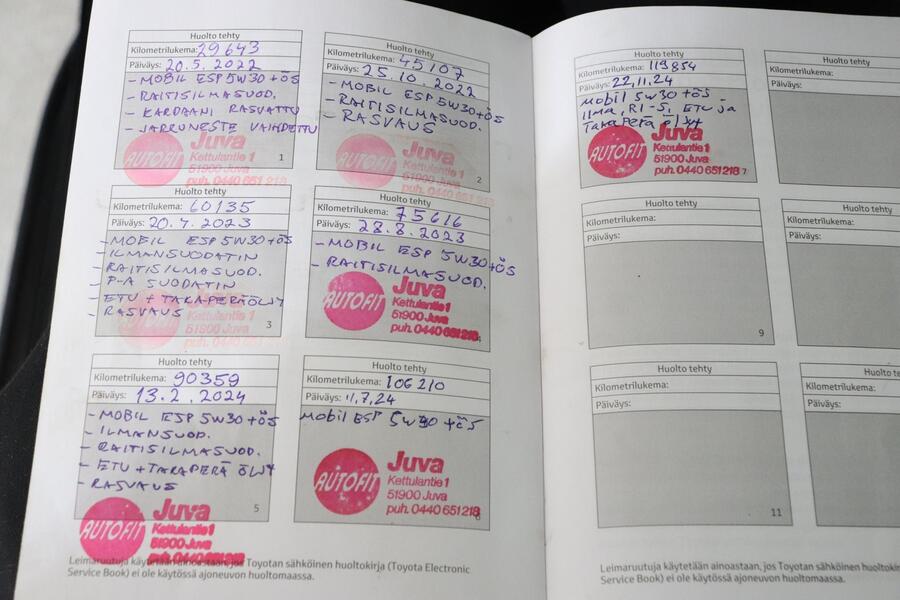 Huolto tehty
Kilometrilukema: 29643
Päiväys: 20.5.2022
- MOBIL ESP 5W30 + ÖS
- RAITISILMASUOD.
- KARDAANI RASVATTU
- JARRUNESTE VAIHDETTU
AUTOFIT Juva
Kettulantie 1
51900 Juva
puh. 0440 651 218
1
Huolto tehty
Kilometrilukema: 45107
Päiväys: 25.10.2022
- MOBIL ESP 5W30+ÖS
- RAITISILMASUOD.
- RASVAUS
AUTOFIT Juva
Kettulantie 1
51900 Juva
puh. 0440 651 218
2
Huolto tehty
Kilometrilukema: 60135
Päiväys: 20.4.2023
- MOBIL ESP 5W30+ÖS
- ILMANSUODATIN
- RAITISILMASUOD.
- P-A SUODATIN
- ETU + TAKAPERÄÖLJY
- RASVAUS
AUTOFIT Juva
Kettulantie 1
51900 Juva
puh. 0440 651 218
3
Huolto tehty
Kilometrilukema: 75616
Päiväys: 28.8.2023
- MOBIL ESP 5W30+ÖS
- RAITISILMASUOD.
AUTOFIT Juva
Kettulantie 1
51900 Juva
puh. 0440 651 218
4
Huolto tehty
Kilometrilukema: 90359
Päiväys: 13.2.2024
- MOBIL ESP 5W30 + ÖS
- ILMANSUOD.
- RAITISILMASUOD.
- ETU + TAKAPERÄ ÖLJY
- RASVAUS
5
AUTOFIT Juva
Kettulantie 1
51900 Juva
puh. 0440 651 218
Huolto tehty
Kilometrilukema: 106210
Päiväys: 11,7,24
Mobil ESP 5w30 + ÖS
AUTOFIT Juva
Kettulantie 1
51900 Juva
puh. 0440 651 218
Leimaruutuja käytetään ainoastaan, jos Toyotan sähköinen huoltokirja (Toyota Electronic
Service Book) ei ole käytössä ajoneuvon huoltomaassa.
Huolto tehty
Kilometrilukema: 119854
Päiväys: 22,11.24
Mobil 5w30 + ös
ilma, RI-S, ETU ja
Takaperä
AUTOFIT Juva
Kettulantie 1
51900 Juva
puh. 0440 651 218 7
Huolto teh
Kilometrilukema:
Päiväys:
Huolto tehty
Kilometrilukema:
Päiväys:
9
Huolto te
Kilometrilukema:
Päiväys:
Huolto tehty
Kilometrilukema:
Päiväys:
11
Huolto t
Kilometrilukema:
Päiväys:
Leimaruutuja käytetään ainoastaan, jos Toyotan sähköinen huoltokirja
Service Book) ei ole käytössä ajoneuvon huoltomaassa.